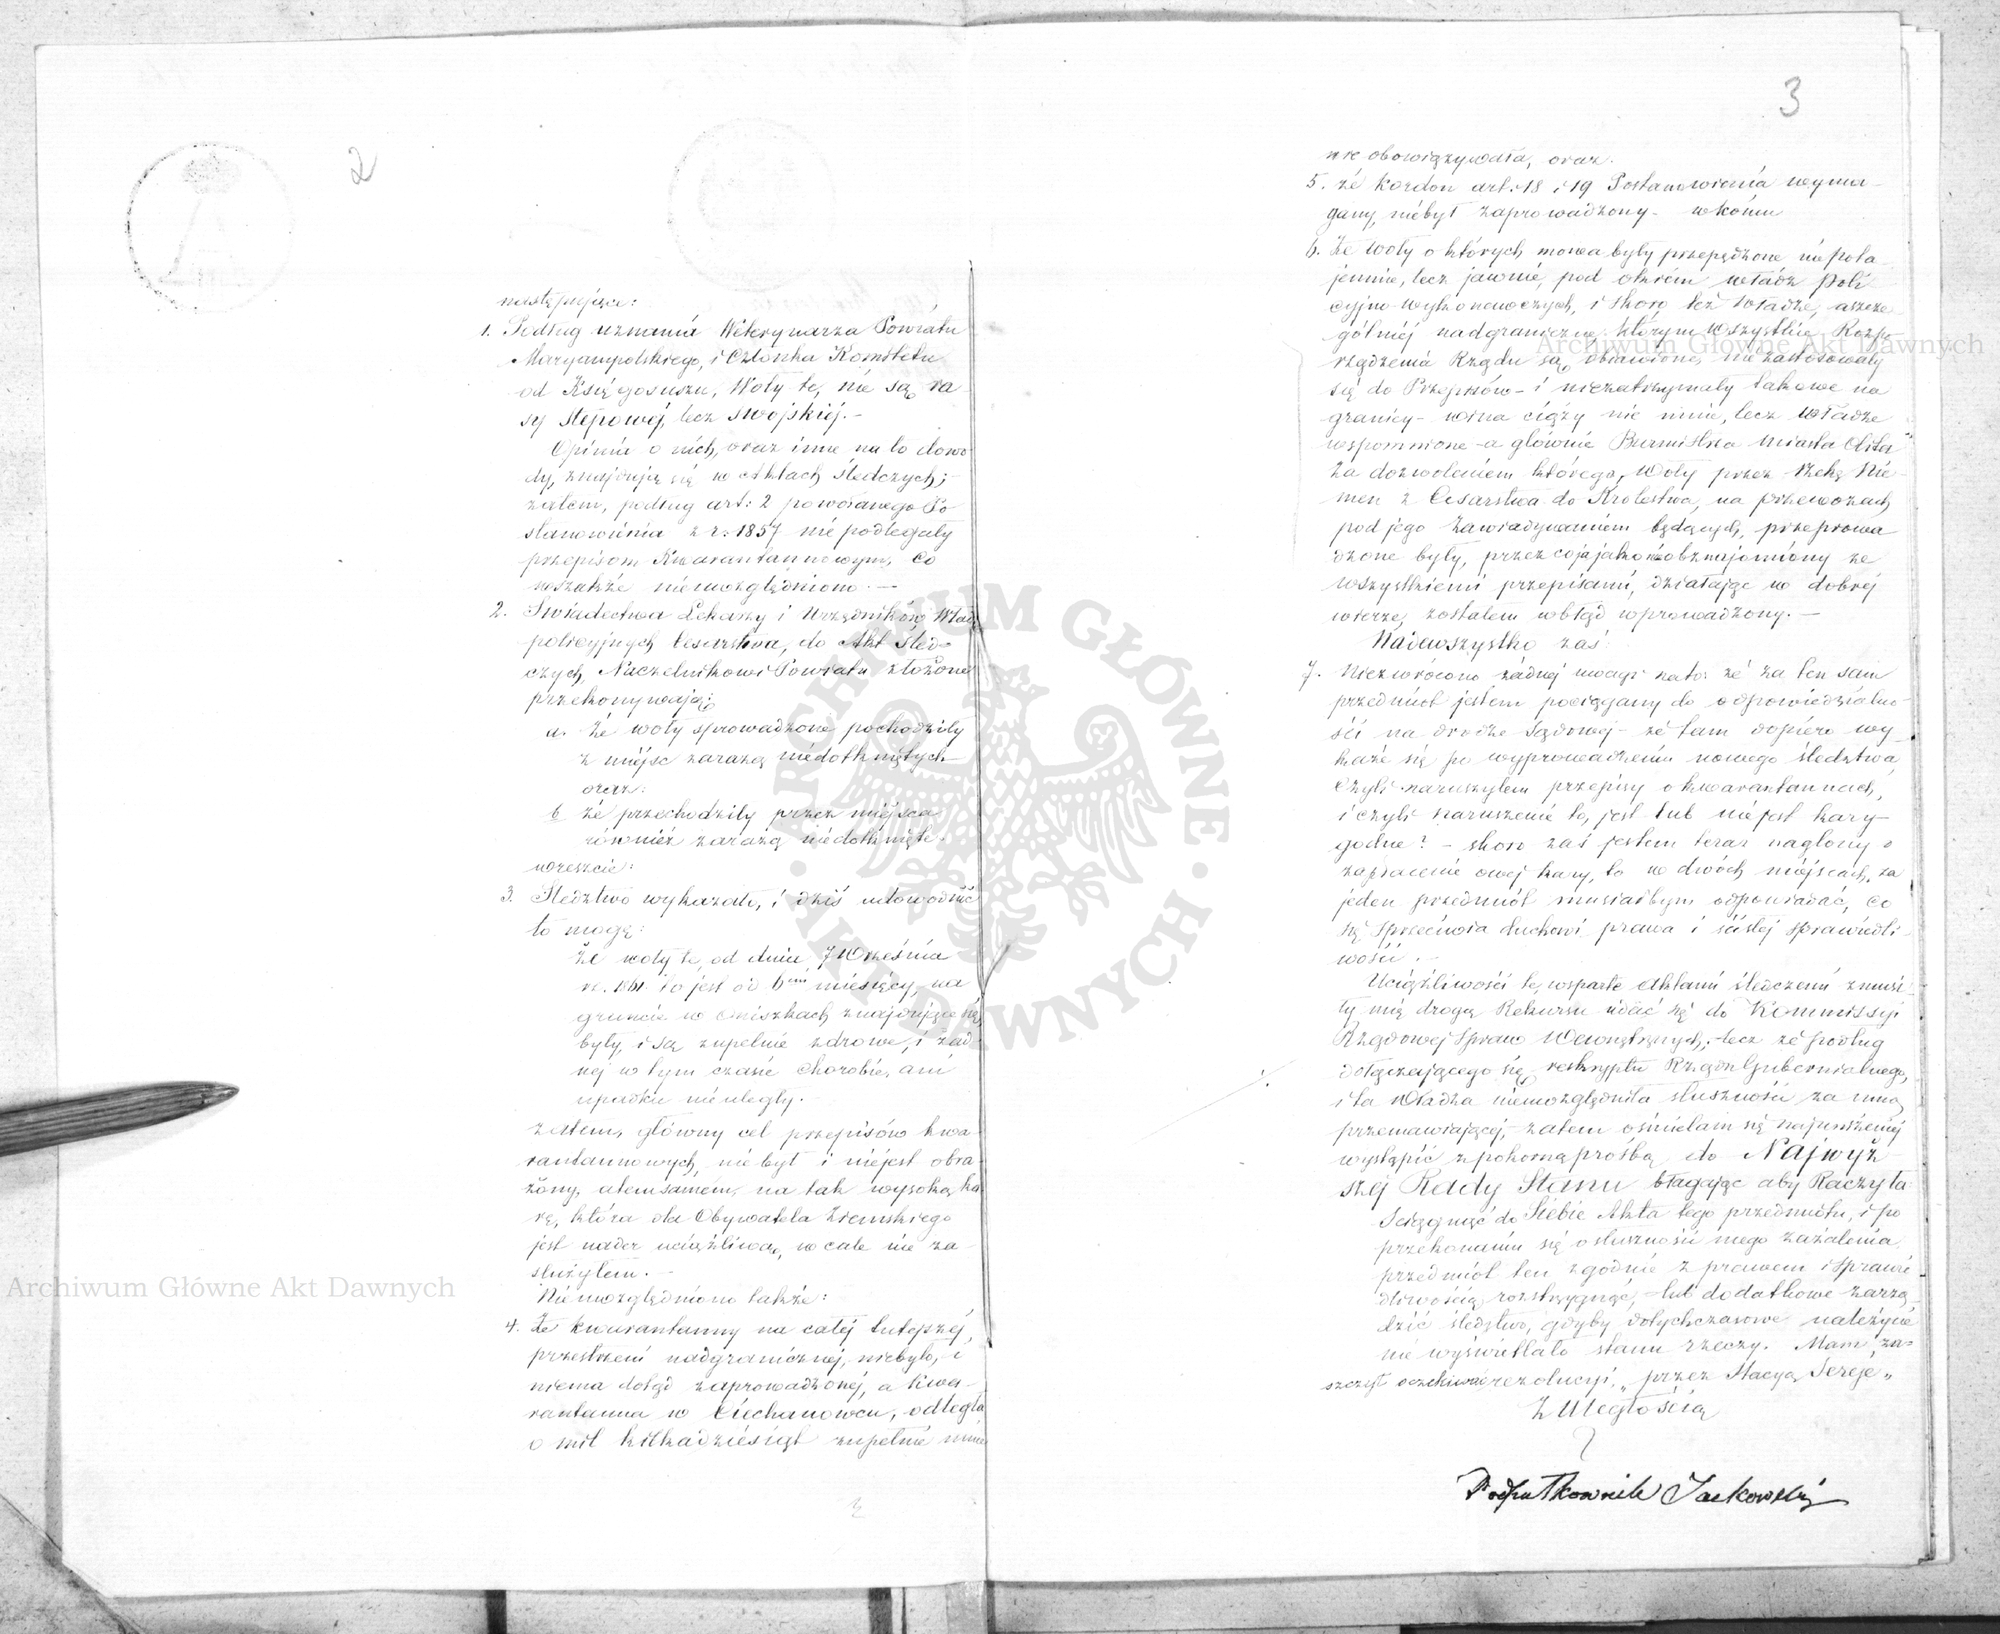 2
następujące:
1. Podług uznania Weterynarza Powiatu
Maryampolskiego, i Członka Komitetu
od Księgosuszu, Woły te, nie są ra
sy stepowej, lecz swojskiej.-
Opinia o nich, oraz inne na to dowo
dy, znajdują się w Aktach śledczych;-
zatem, podług art: 2 powołanego Po
stanowienia z r: 1857 nie podlegały
przepisom Kwarantannowym, co
wszakże nieuwzględniono.-
2. Świadectwa Lekarzy i Urzędników Władz
policyjnych Cesarstwa, do Akt śled-
czych, Naczelnikowi Powiatu złożone
przekonywają:
a. Że woły sprowadzone pochodziły
z miejsc zarazą niedotkniętych
oraz:
b że przechodziły przez miejsca
również zarazą niedotknięte.
wreszcie:
3. Śledztwo wykazało, i dziś udowodnić
to mogę:
Że woły te, od dnia 7 Września
r. 1861 to jest od 6ciu miesięcy, na
gruncie w znajdujące się
były, i są zupełnie zdrowe, i żad-
nej w tym czasie chorobie, ani
upadku nie uległy.-
zatem, główny cel przepisów kwa-
rantannowych, nie był i niejest obra-
żony, atemsamem, na tak wysoką ka
rę, która dla Obywatela Ziemskiego
jest nader uciążliwą, wcale nie za-
służyłem.-
Nieuwzględniono także:
4. Że kwarantanny na całej tutejszej,
przestrzeni nadgranicznej, niebyło, i
niema dotąd zaprowadzonej, a Kwa-
rantanna w Ciechanowcu, odległa
o mil kilkadziesiąt zupełnie mnie
3
nie obowiązywała, oraz.
5. że kordon art. 18 i 19 Postanowienia wyma-
gany, niebył zaprowadzony- wkońcu
6. Że woły o których mowa były przepędzone niepota
jemnie, lecz jawnie, pod okiem władz Poli
cyjno-wykonawczych, i skoro też Władze, aszcze
gólniej nadgraniczne, którym wszystkie Rozpo
rządzenia Rządu są obiawione, niezastosowały
się do Przepisów- i niezatrzymały takowe na
granicy- wina ciąży nie mnie, lecz władze
wspomnione-a głównie Burmistrza miasta
Za dozwoleniem którego, Woły przez rzekę Nie-
men z Cesarstwa do Królestwa, na przewozach
pod jego zawiadywaniem będących, przeprowa
dzone były, przez co ja jako nieobznajomiony ze
wszystkiemi przepisami, działając w dobrej
wierze, zostałem wbłąd wprowadzony.-
Nadewszystko zaś
7. Niezwrócono żadnej uwagi nato: że za ten sam
przedmiot jestem pociągany do odpowiedzialno-
ści na drodze Sądowej- że tam dopiero wy-
każe się po wyprowadzeniu nowego śledztwa,
Czyli naruszyłem przepisy o kwarantannach,
i czyli naruszenie to, jest lub niejest kary-
godne? - skoro zaś jestem teraz naglony o
zapłacenie owej kary, to w dwóch miejscach, za
jeden przedmiot musiałbym odpowiadać, co
się sprzeciwia duchowi prawa i ścisłej sprawiedli-
wości.-
Uciążliwości te, wsparte Aktami śledczemi zmusi-
ły mię drogą Rekursu udać się do Kommissyi
Rządowej Spraw Wewnętrznych;-lecz że podług
dołączającego się, reskryptu Rządu Gubernialnego,
i ta Władza nieuwzględniła słuszności za mną
przemawiającej,- zatem ośmielam się najuniżeniej
wystąpić z pokorną prośbą do Najwyż-
szej Rady Stanu błagając aby Raczyła
Ściągnąć do Siebie Akta tego przedmiotu, i po
przekonaniu się o słuszności mego zażalenia,
przedmiot ten zgodnie z prawem i sprawie
dliwością rozstrzygnąć,- lub dodatkowe zarzą-
dzić śledztwo, gdyby dotychczasowe należycie
nie wyświetlało stanu rzeczy. Mam za-
szczyt oczekiwać rezolucyi, „przez Stacyą Sereje„
Z Uległością
Podpułkownik Jackowski
Archiwum Główne Akt Dawnych
Archiwum Główne Akt Dawnych
ARCHIWUM GŁÓWNE AKT DAWNYCH